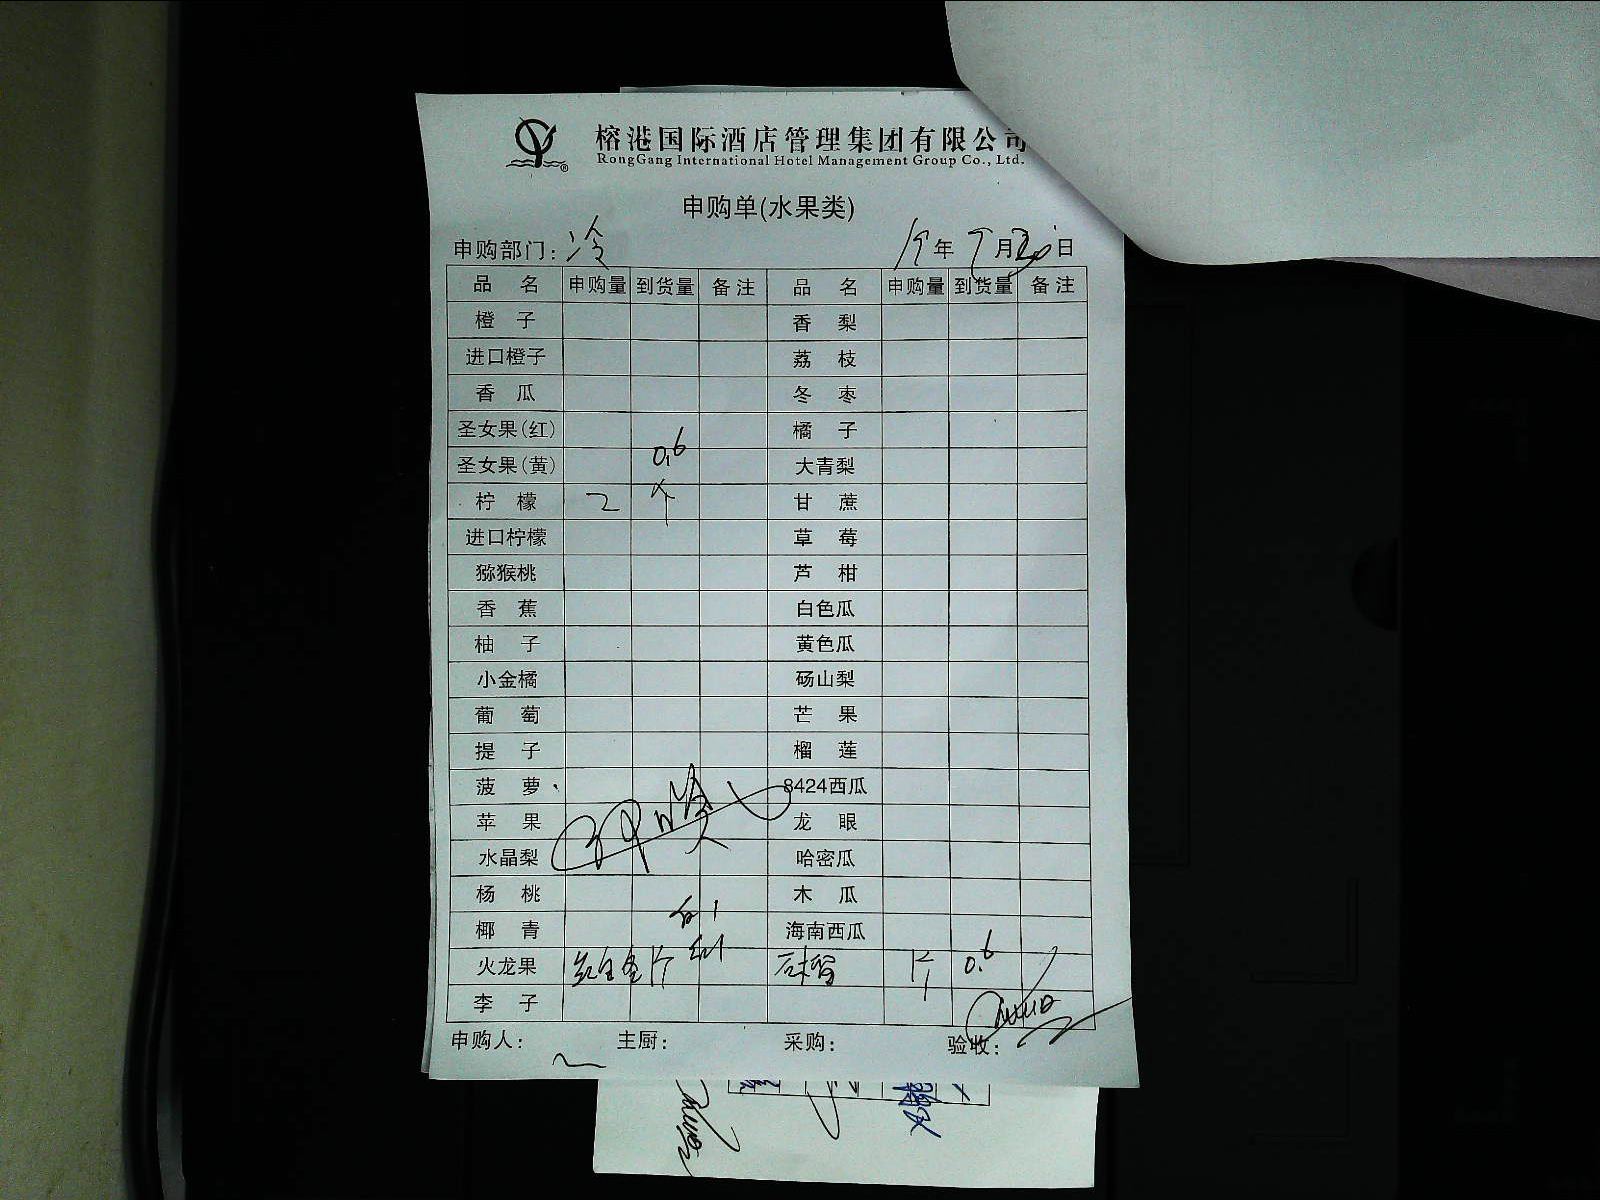 榕港国际酒店管理集团有限公司
RongGang International Hotel Management Group Co., Ltd.
申购单(水果类)
申购部门: 冷 19年 月 日
品 名 申购量 到货量 备注 品 名 申购量 到货量 备注
橙 子 香 梨
进口橙子 荔 枝
香 瓜 冬 枣
圣女果(红) 橘 子
圣女果(黄) 0.6 大青梨
柠 檬 2 个 甘 蔗
进口柠檬 草 莓
猕猴桃 芦 柑
香 蕉 白色瓜
柚 子 黄色瓜
小金橘 砀山梨
葡 萄 芒 果
提 子 榴 莲
菠 萝 8424西瓜
苹 果 龙 眼
水晶梨 哈密瓜
杨 桃 木 瓜
椰 青 海南西瓜
火龙果 红白各1个 石榴 1个 0.6
李 子
申购人: 主厨: 采购: 验收: